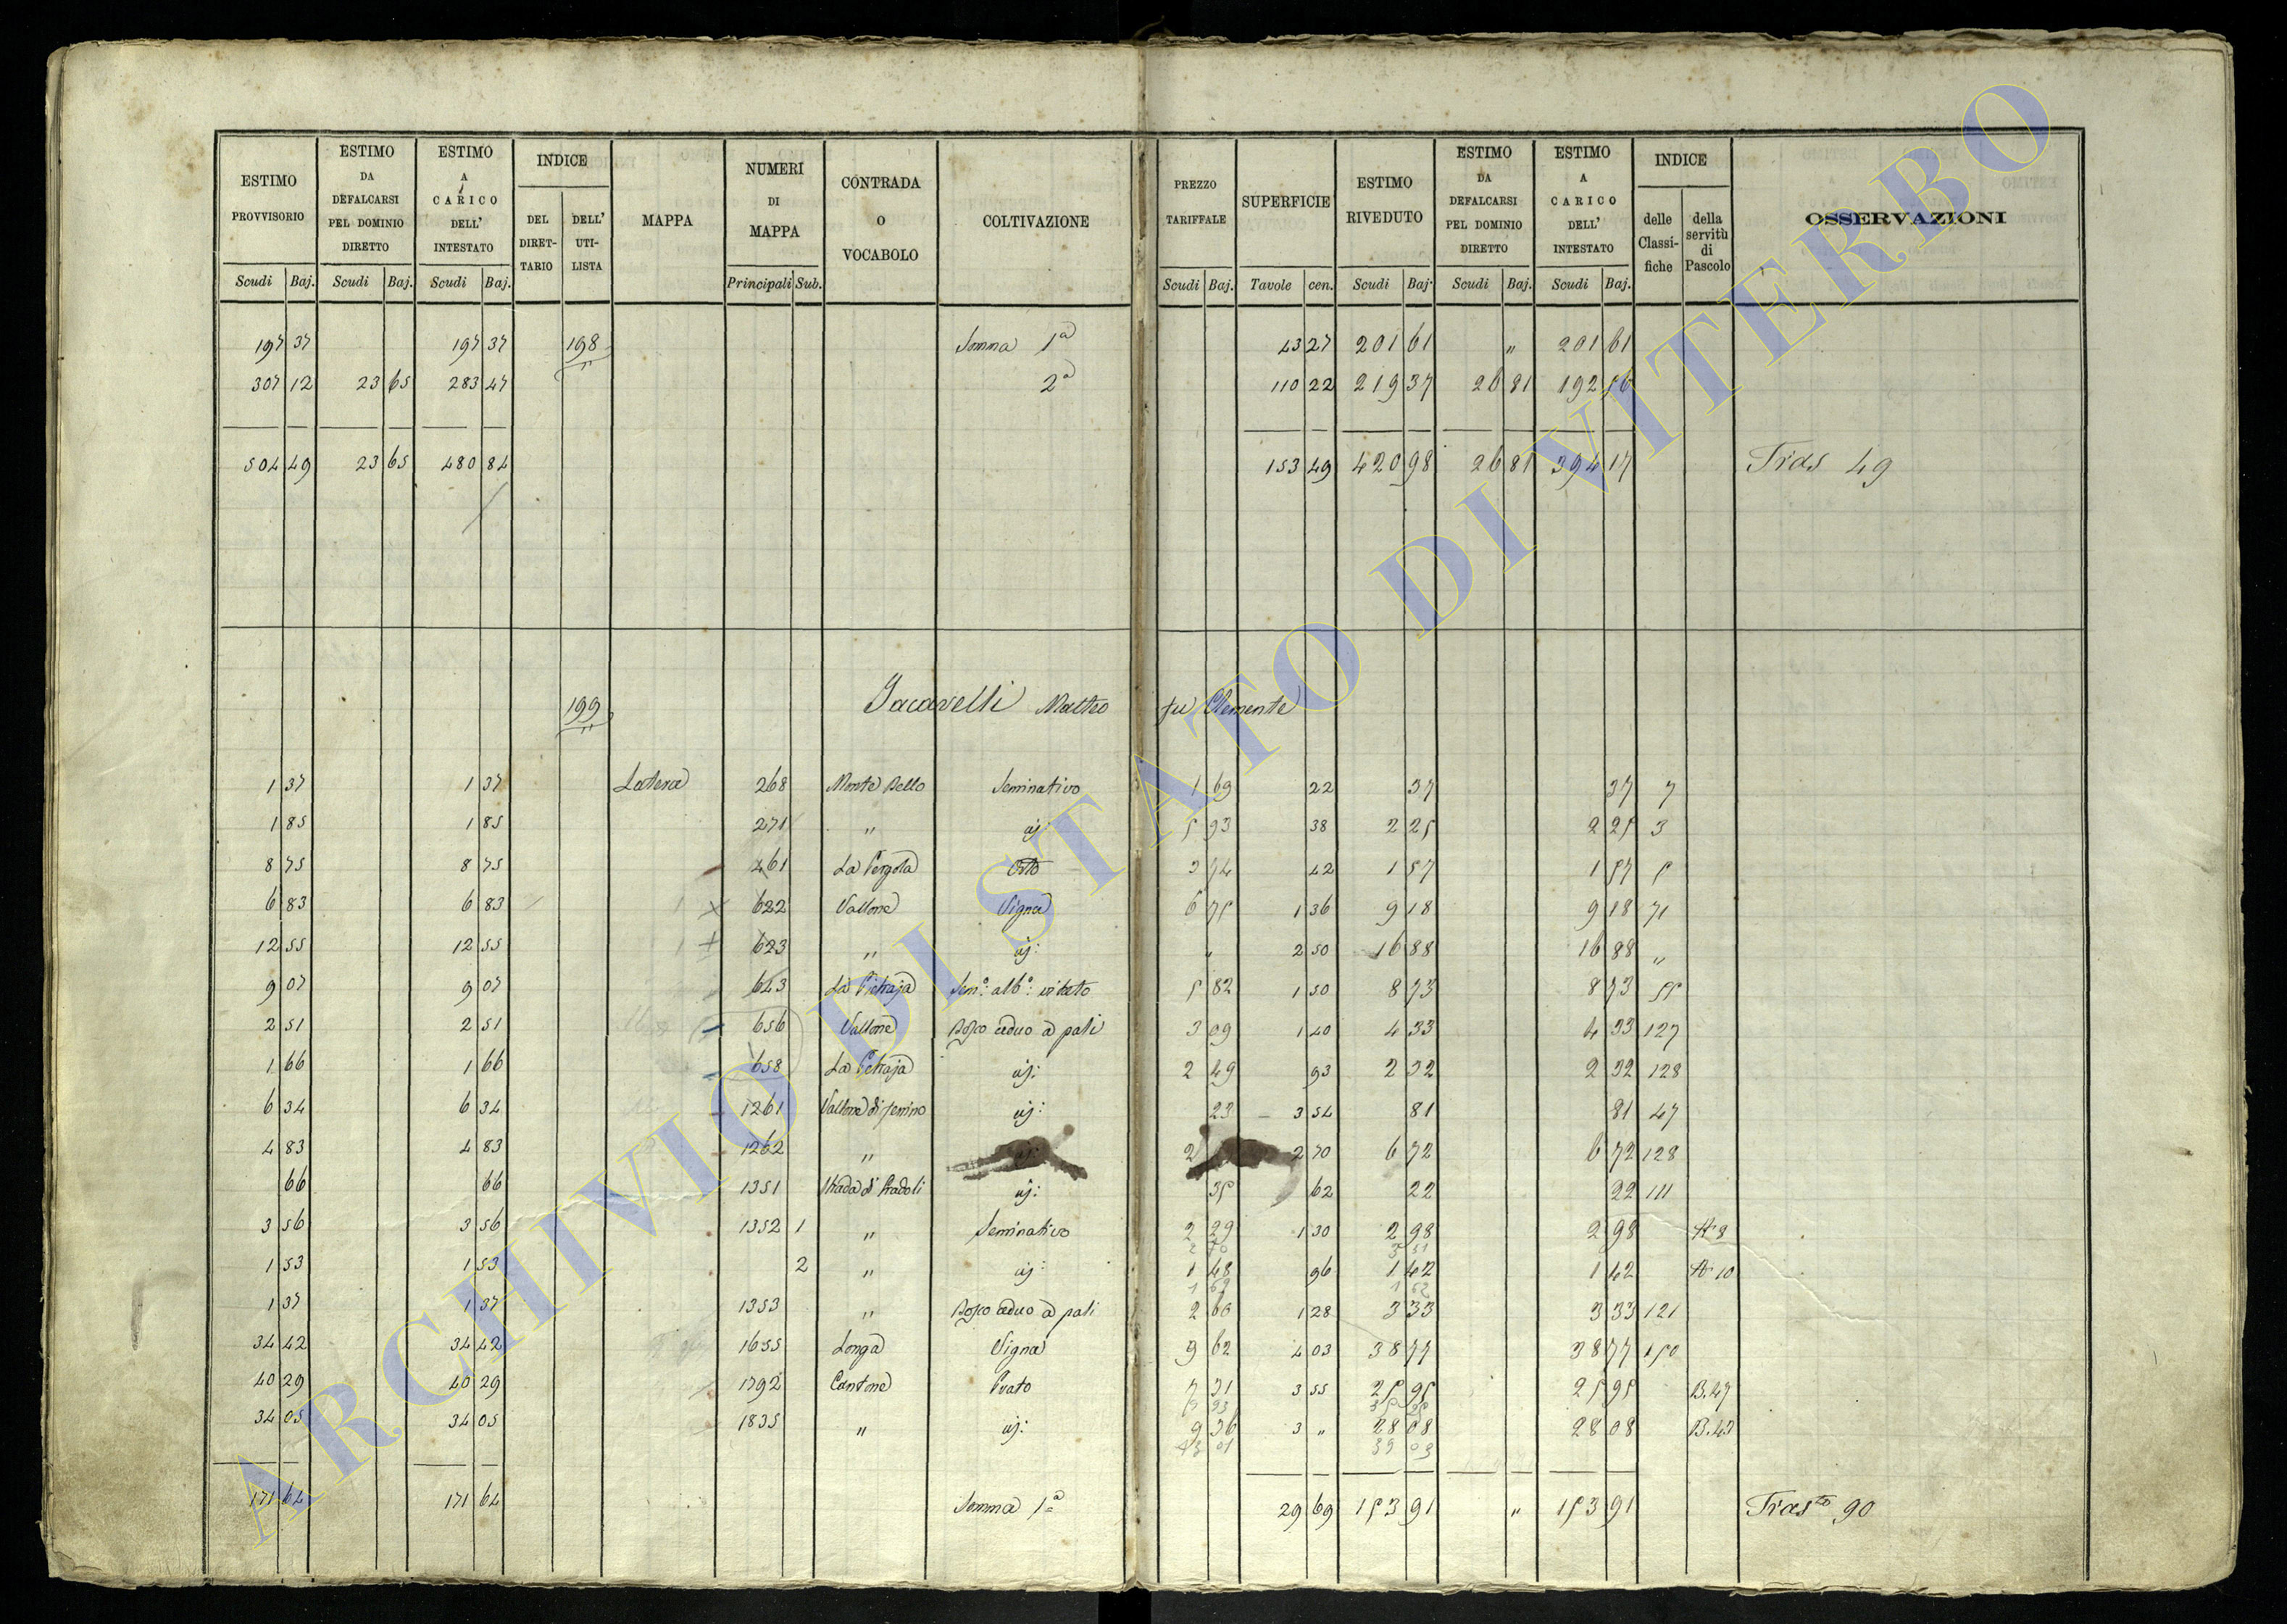 ESTIMO PROVVISORIO Scudi Baj. | ESTIMO DA DEFALCARSI PEL DOMINIO DIRETTO Scudi Baj. | ESTIMO A CARICO DELL' INTESTATO Scudi Baj. | INDICE DEL DIRET-TARIO | DELL' UTI-LISTA | MAPPA | NUMERI DI MAPPA Principali Sub. | CONTRADA O VOCABOLO | COLTIVAZIONE | PREZZO TARIFFALE Scudi Baj. | SUPERFICIE Tavole cen. | ESTIMO RIVEDUTO Scudi Baj. | ESTIMO DA DEFALCARSI PEL DOMINIO DIRETTO Scudi Baj. | ESTIMO A CARICO DELL' INTESTATO Scudi Baj. | INDICE delle Classi-fiche | della servitù di Pascolo | OSSERVAZIONI
197 37 197 37 198 Somma 1a 43 27 201 61 " 201 61
307 12 23 65 283 47 2a 110 22 219 37 26 81 192 56
504 49 23 65 480 84 153 49 420 98 26 81 394 17 Tras 49
199 Jacavelli Matteo fu Clemente
1 37 1 37 Latera 268 Monte Bello Seminativo 1 69 22 37 37 7
1 85 1 85 271 " id: 5 93 38 2 25 2 25 3
8 75 8 75 461 La Pergola Orto 3 74 42 1 57 1 57 5
6 83 6 83 622 Vallone Vigna 6 75 1 36 9 18 9 18 71
12 55 12 55 623 " id: " 2 50 16 88 16 88 "
9 07 9 07 643 La Pietraja Semo: albo: vitato 5 82 1 50 8 73 8 73 55
2 51 2 51 656 Vallone Bosco ceduo a pali 3 09 1 40 4 33 4 33 127
1 66 1 66 658 La Petraja id: 2 49 93 2 32 2 32 128
6 34 6 34 1261 Vallone di id: 23 3 54 81 81 47
4 83 4 83 1262 " id: 2 2 70 6 72 6 72 128
66 66 1351 Strada di Gradoli id: 35 62 22 22 111
3 56 3 56 1352 1 " Seminativo 2 29 1 30 2 98 2 98 A 8
2 70 3 51
1 53 1 53 2 " id: 1 48 96 1 42 1 42 A 10
1 69 1 62
1 37 1 37 1353 " Bosco ceduo a pali 2 60 1 28 3 33 3 33 121
34 42 34 42 1655 Longa Vigna 9 62 4 03 38 77 38 77 150
40 29 40 29 1792 Cantone Prato 7 31 3 55 25 95 25 95 B.47
34 05 34 05 1835 " id: 9 36 3 " 28 08 28 08 B.43
13 01 39 03
171 64 171 64 Somma 1a 29 69 153 91 " 153 91 Trasto 90
ARCHIVIO DI STATO DI VITERBO